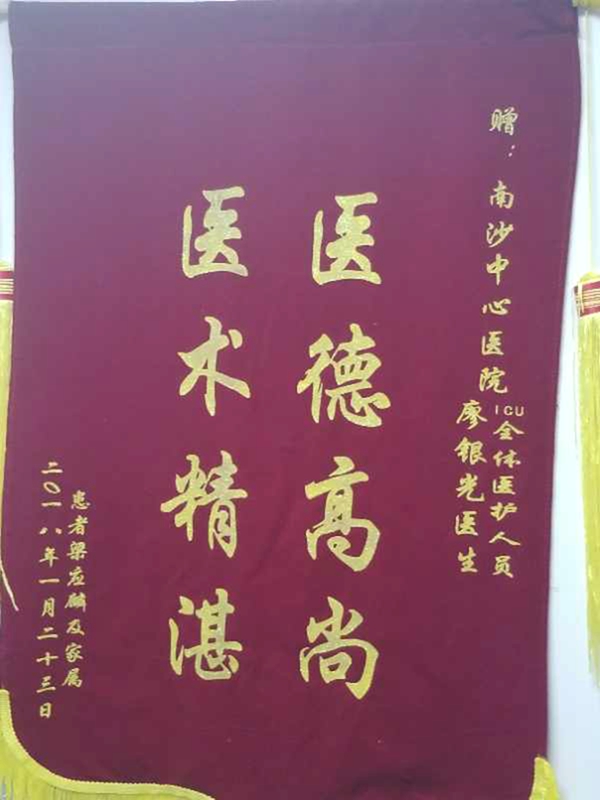 赠：南沙中心医院
ICU全体医护人员
廖银光医生
医德高尚
医术精湛
患者梁应麟及家属
二〇一八年一月二十三日